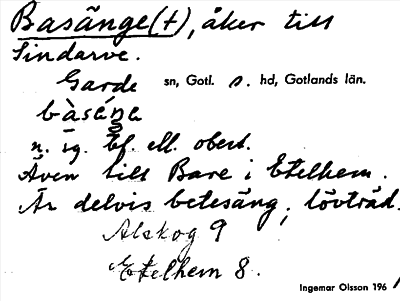 Basänge(t), åker till
Sindarve.
Garde sn, Gotl. s. hd, Gotlands län.
n. sg. bf. ell. obest.
Även till Bare i Etelhem.
Är delvis betesäng, lövträd.
Alskog 9
Etelhem 8.
Ingemar Olsson 196